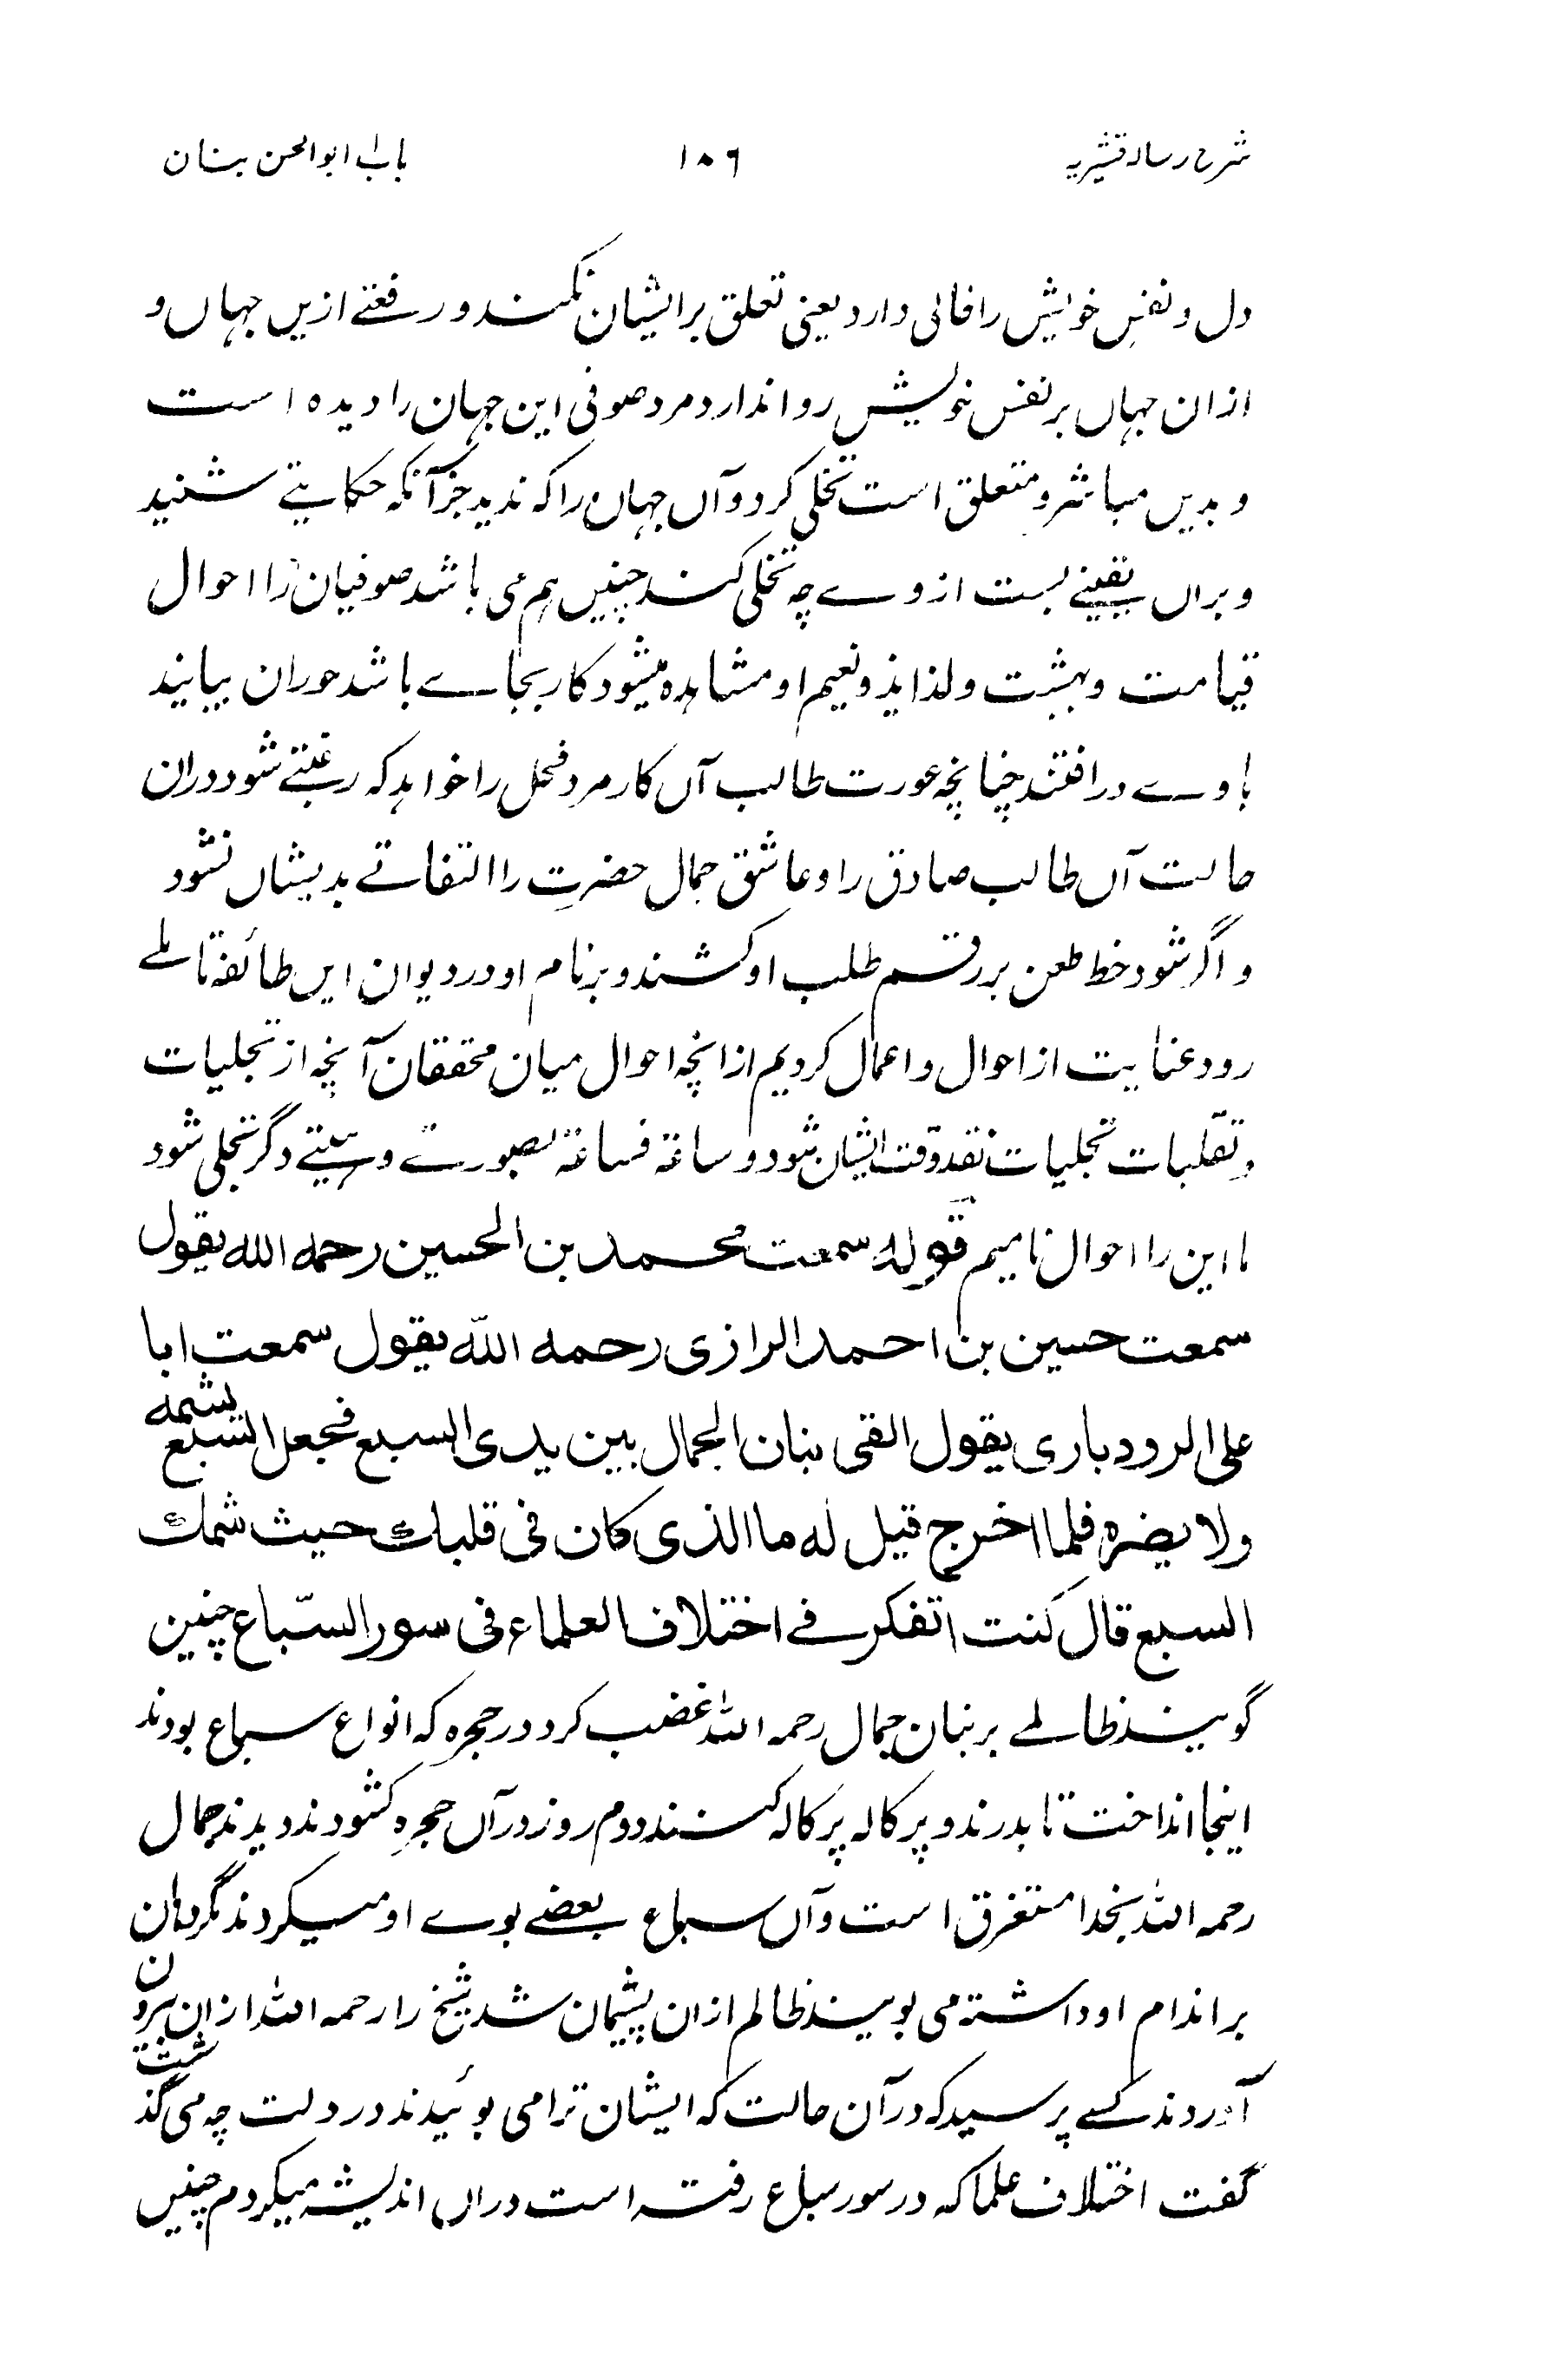 شرح رسالہ قشیریہ ۱۰۶ باب ابوالحسن بنان
دل و نفس خویش را خالی دارد یعنی تعلق بر ایشان نکند و رفعتے ازیں جہاں و
ازان جہاں بر نفس خویش روا ندارد مرد صوفی این جہان را دیدہ است
و بدیں مباشر و متعلق است تخلی کرد و آں جہاں را کہ ندید جز آنکہ حکایتے شنید
و براں یقینے بست از وے چہ تخلی کند چنیں ہم می باشد صوفیان را احوال
قیامت و بہشت و لذایذ و نعیم او مشاہدہ میشود کار بجاے باشد حوران بیایند
با وے در افتند چنانچہ عورت طالب آں کار مرد فحل را خواہد کہ رغبتے شود دران
حالت آں طالب صادق را و عاشق جمال حضرت را التفاتے بدیشاں نشود
و اگر شود خط طعن بر رقم طلب او کشند و برنام او در دیوان ایں طائفہ تاملے
رود عنایت از احوال و اعمال کردیم ازانچہ احوال میان محققان آنچہ از تجلیات
و تقلبات تجلیات نقد وقت ایشان شود و ساعۃ فساعۃ بصورتے و ہیئتے دگر تجلی شود
ما این را احوال نامیم قوله سمعت محمد بن الحسین رحمه الله یقول
سمعت حسین بن احمد الرازی رحمه الله یقول سمعت ابا
علی الرودباری یقول القی بنان الجمال بین یدی السبع فجعل السبع یشمه
ولا یضره فلما اخرج قیل له ما الذی کان فی قلبك حیث شمك
السبع قال کنت اتفکر فے اختلاف العلماء فی سور السّباع چنین
گویند ظالمے بر بنان جمال رحمہ اللہ غضب کرد در حجرہ کہ انواع سباع بودند
اینجا انداخت تا بدرند و پرکالہ پرکالہ کنند دوم روز در آں حجرہ کشودند دیدند جمال
رحمہ اللہ بخدا مستغرق است و آں سباع بعضے بوے او میکردند گردہان
بر اندام او داشتہ می بویند ظالم ازان پشیمان شد شیخ را رحمہ اللہ ازان بیرون
آوردند کسے پرسید کہ در آن حالت کہ ایشان ترا می بوئیدند در دلت چہ می گذشت
گفت اختلاف علما کہ در سور سباع رفتہ است دراں اندیشہ میکردم چنیں